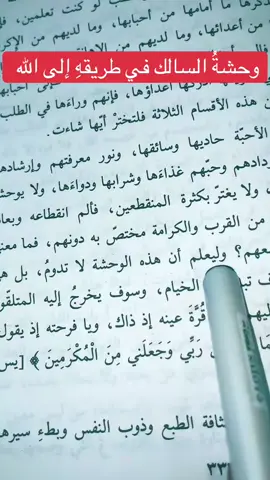 ذكرها ما أمامها من أحبابها، وما لديهم من الإكرا
من أعدائها، وما لديهم من
وحشةُ السالك في طريقهِ إلى الله
أعداؤها، فإنهم وراءَها في الطلب
هذه الأقسام الثلاثة فلتخترْ أيّها شاءت.
الأحبّة حاديها وسائقها، ونور معرفتهم وإرشاده
ودادهم وحبّهم غذاءَها وشرابها ودواءَها، ولا يوحش
ولا يغترّ بكثرة المنقطعين، فألم انقطاعه وبعا
من القرب والكرامة مختصّ به دونهم، فما معن
معهم؟ وليعلم أن هذه الوحشة لا تدومُ، بل ه
الخيام، وسوف يخرجُ إليه المتلقّو
قُرَّةَ عينه إذ ذاك، ويا فرحته إذ يقول
رَبِّي وَجَعَلَنِي مِنَ الْمُكْرَمِينَ﴾ [يس
ثافة الطبع وذوب النفس وبطءِ سيرها